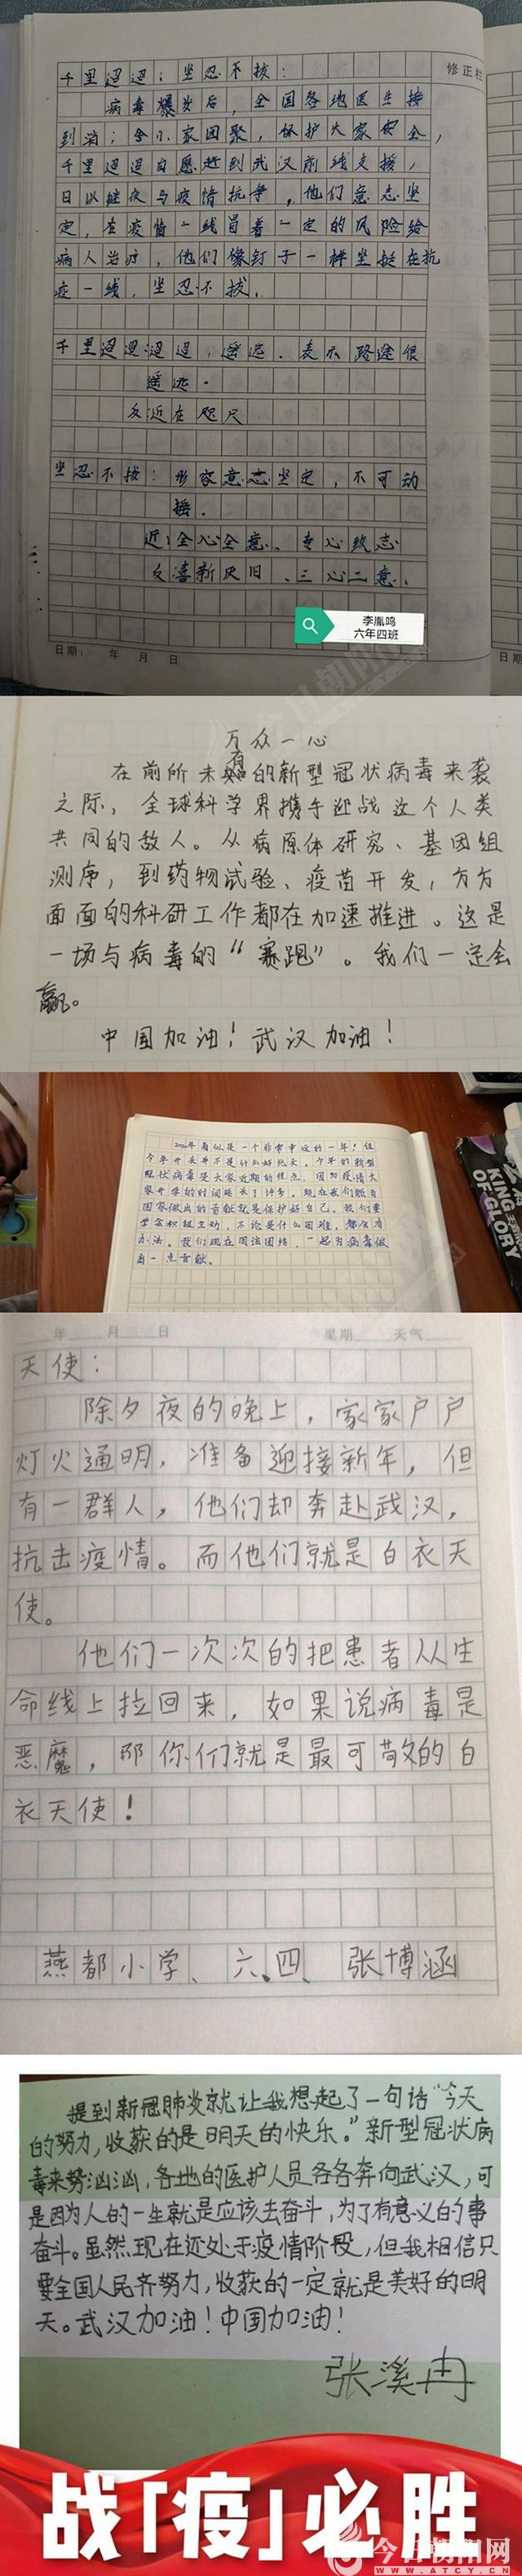 修正栏
千里迢迢；坐忍不拔：
病毒爆发后，全国各地医生接
到消；舍小家团聚，保护大家安全，
千里迢迢自愿赶到武汉前线支援，
日以继夜与疫情抗争，他们意志坚
定，在疫情一线冒着一定的风险给
病人治疗，他们像钉子一样坐挺在抗
疫一线，坐忍不拔。
千里迢迢：迢迢，遥远、表示路途很
遥远。
反近在咫尺
坐忍不拔：形容意志坚定，不可动
摇。
近：全心全意、专心致志
反喜新厌旧、三心二意、
李胤鸣
六年四班
日期： 年 月 日
日期
万众一心
在前所未有的新型冠状病毒来袭
之际，全球科学界携手迎战这个人类
共同的敌人。从病原体研究、基因组
测序，到药物试验、疫苗开发，方方
面面的科研工作都在加速推进。这是
一场与病毒的“赛跑”。我们一定会
赢。
中国加油！武汉加油！
2020年看似是一个非常幸运的一年！但
今年开头并不是什么好兆头。今年的新型
冠状病毒是大家近期的焦点，因为疫情大
家开学的时间延长了许多。现在我们能为
国家做出的贡献就是保护好自己。我们要
学会积极主动，不论是什么困难，都会有
办法。我们现在因该团结，一起为病毒做
出一点贡献。
KING
OF GLORY
年 月 日 星期 天气
天使：
除夕夜的晚上，家家户户
灯火通明，准备迎接新年，但
有一群人，他们却奔赴武汉，
抗击疫情。而他们就是白衣天
使。
他们一次次的把患者从生
命线上拉回来，如果说病毒是
恶魔，那你们就是最可敬的白
衣天使！
燕都小学、六、四、张博涵
提到新冠肺炎就让我想起了一句话“今天
的努力，收获的是明天的快乐。”新型冠状病
毒来势汹汹，各地的医护人员各各奔向武汉，可
是因为人的一生就是应该去奋斗，为了有意义的事
奋斗。虽然现在还处于疫情阶段，但我相信只
要全国人民齐努力，收获的一定就是美好的明
天。武汉加油！中国加油！
张溪冉
战「疫」必胜
今日朝阳网
WWW.ATCY.CN